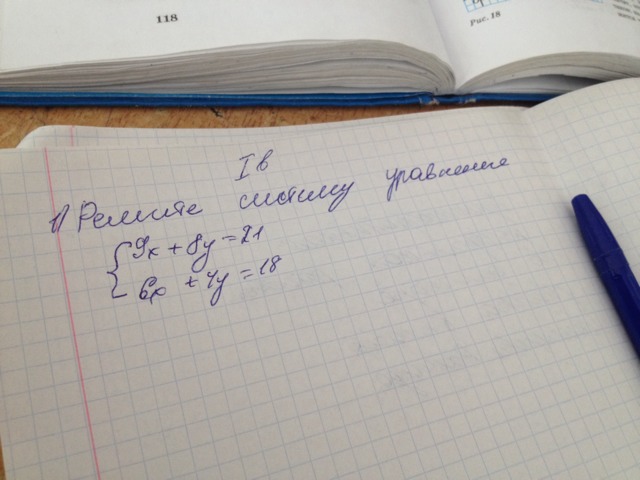 118
Рис. 18
I в
1) Решите систему уравнение
9x + 8y = 21
6x + 4y = 18